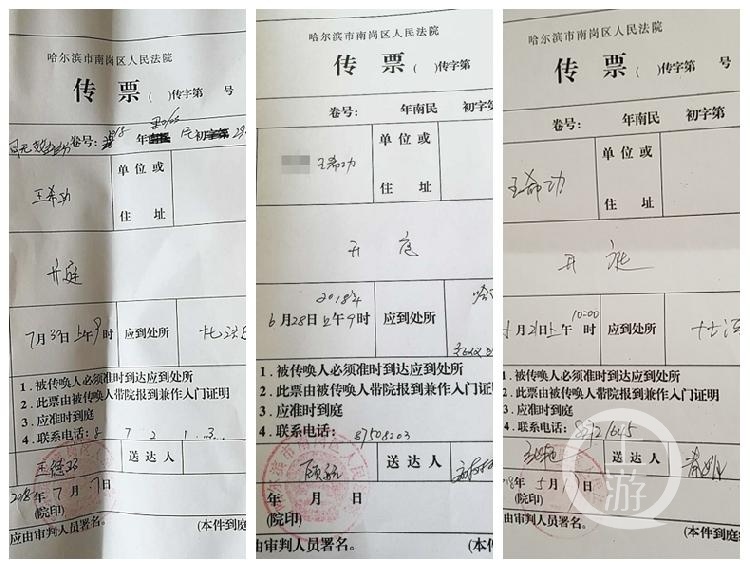 哈尔滨市南岗区人民法院
传 票 ( )传字第 号
卷号: 年 初字第
王希功
单位或
住 址
开庭
7月 日上午9时
应到处所
1.被传唤人必须准时到达应到处所
2.此票由被传唤人带院报到兼作入门证明
3.应准时到庭
4.联系电话:
送达人
2018年7月 日
(院印)
应由审判人员署名。
(本件到庭
哈尔滨市南岗区人民法院
传 票 ( )传字第
卷号: 年南民 初字第
王希功
单位或
住 址
开庭
2018年
6月28日上午9时
应到处所
1.被传唤人必须准时到达应到处所
2.此票由被传唤人带院报到兼作入门证明
3.应准时到庭
4.联系电话: 87508203
送达人
年 月 日
(院印)
由审判人员署名。
(本件
哈尔滨市南岗区人民法院
传 票 ( )传字第
卷号: 年南民 初字
王希功
单位或
住 址
开庭
月21日上午10:00时
应到处所
1.被传唤人必须准时到达应到处所
2.此票由被传唤人带院报到兼作入门证明
3.应准时到庭
4.联系电话:
送达人
年5月 日
(院印)
应由审判人员署名。
(本件到庭
游